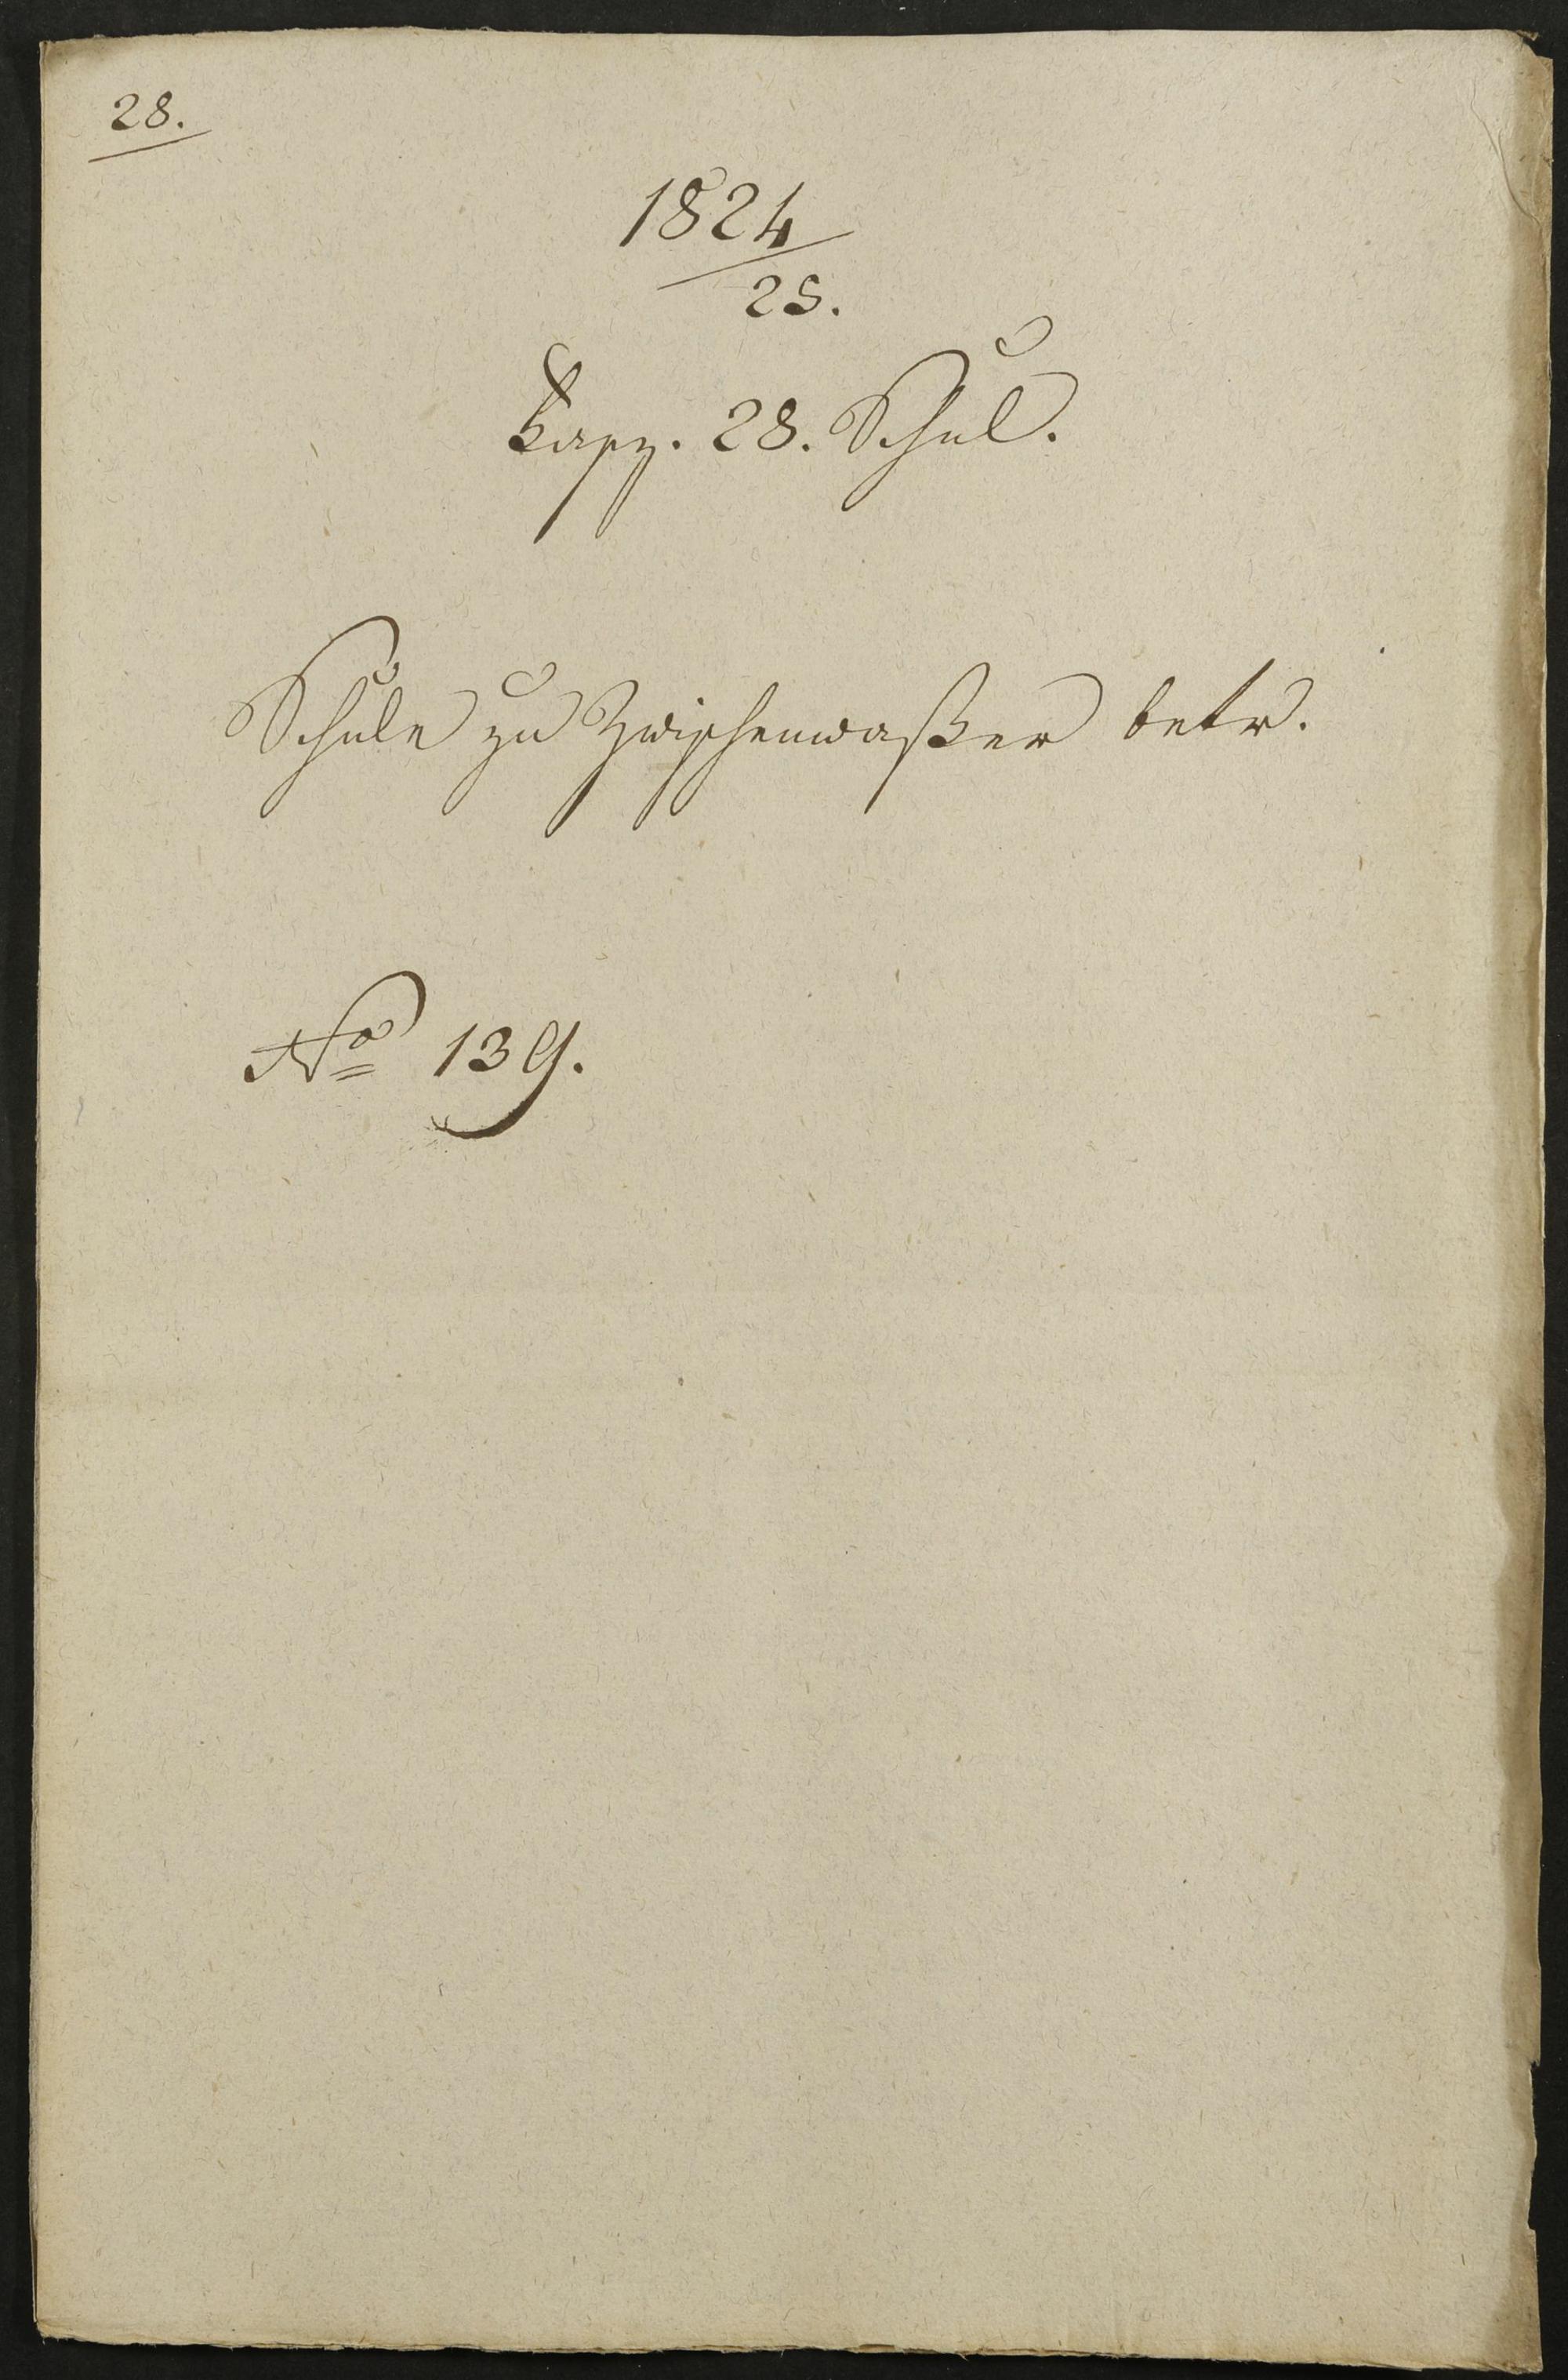 28.
1824
25.
Fasz. 28. Schul.
Schule zu Zwischenwaßer betr.
No 139.